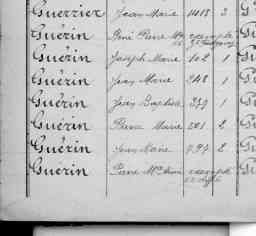 Guerrier Jean Marie 1418 3
Guérin René Pierre Mie exempté
Guérin Joseph Marie 102 1
Guérin Jean Marie 248 1
Guérin Jean Baptiste 359 1
Guérin Pierre Marie 501 2
Guérin Jean Marie 2
Guérin Pierre exempté